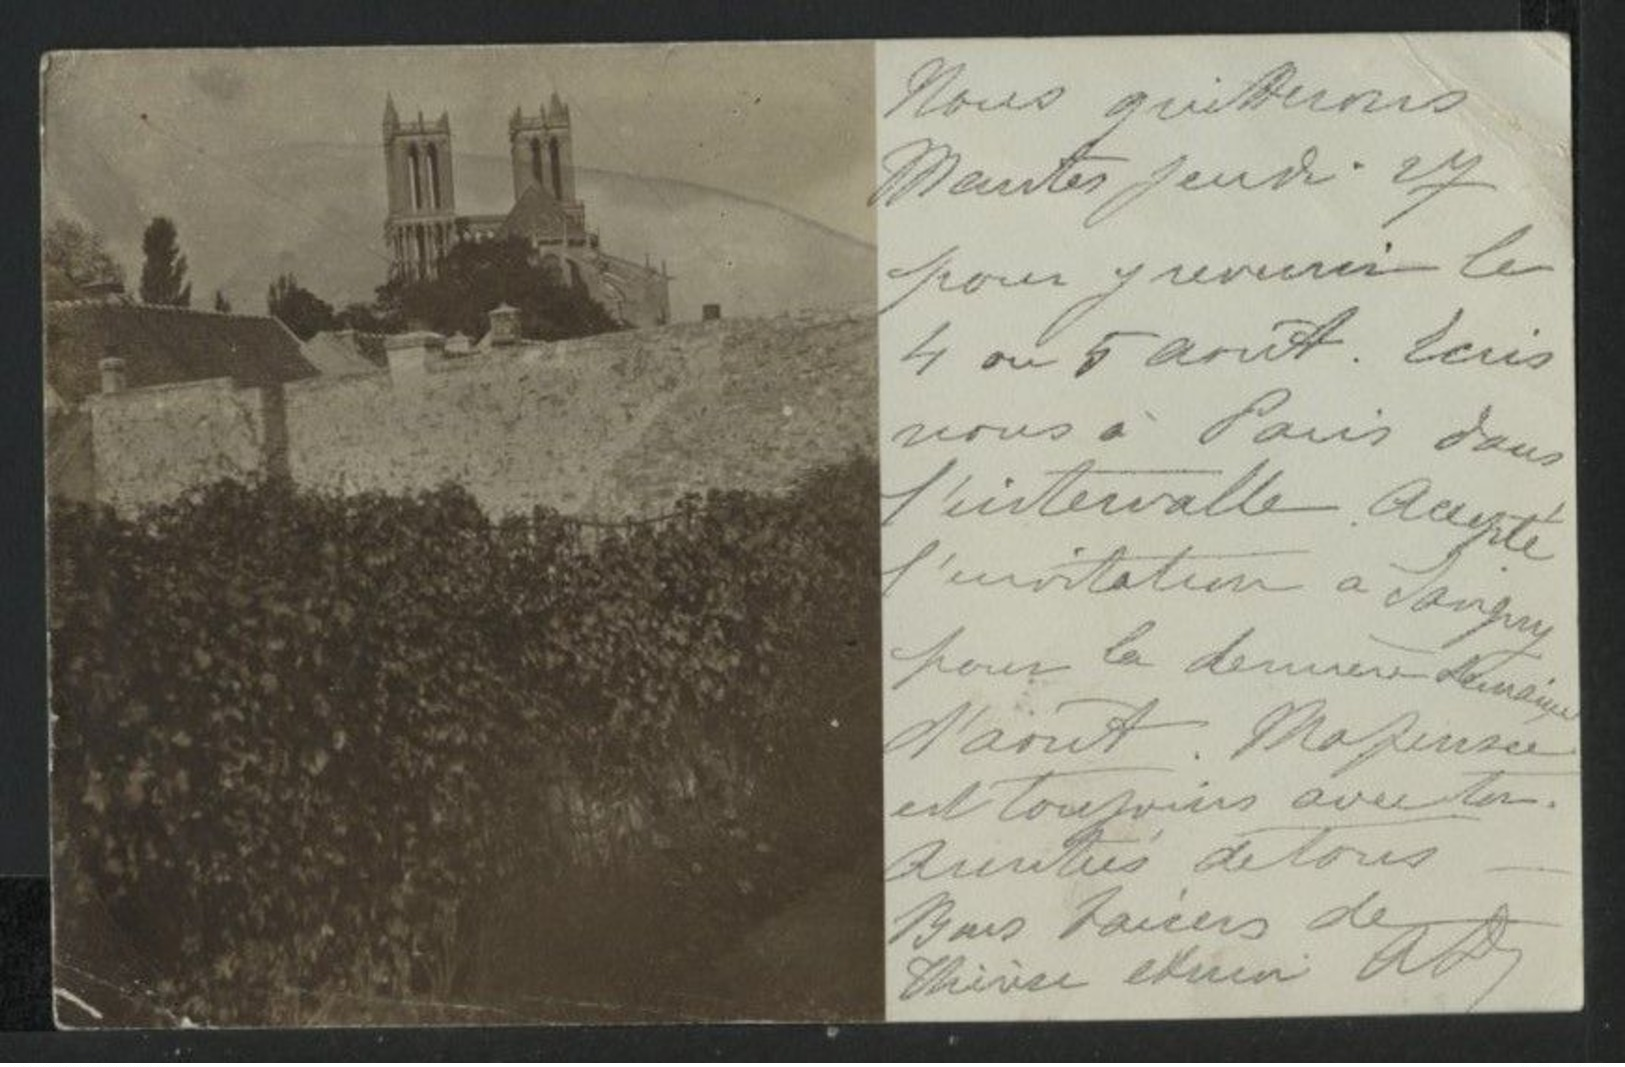 Nous quitterons
Mantes jeudi 27
pour y revenir le
4 ou 5 août. Ecris
nous à Paris dans
l'intervalle. Accepté
l'invitation a Savigny
pour la dernière semaine
d'août. Ma pensée
est toujours avec toi.
Amitiés de tous —
Bons baisers de
Thérèse et moi AD